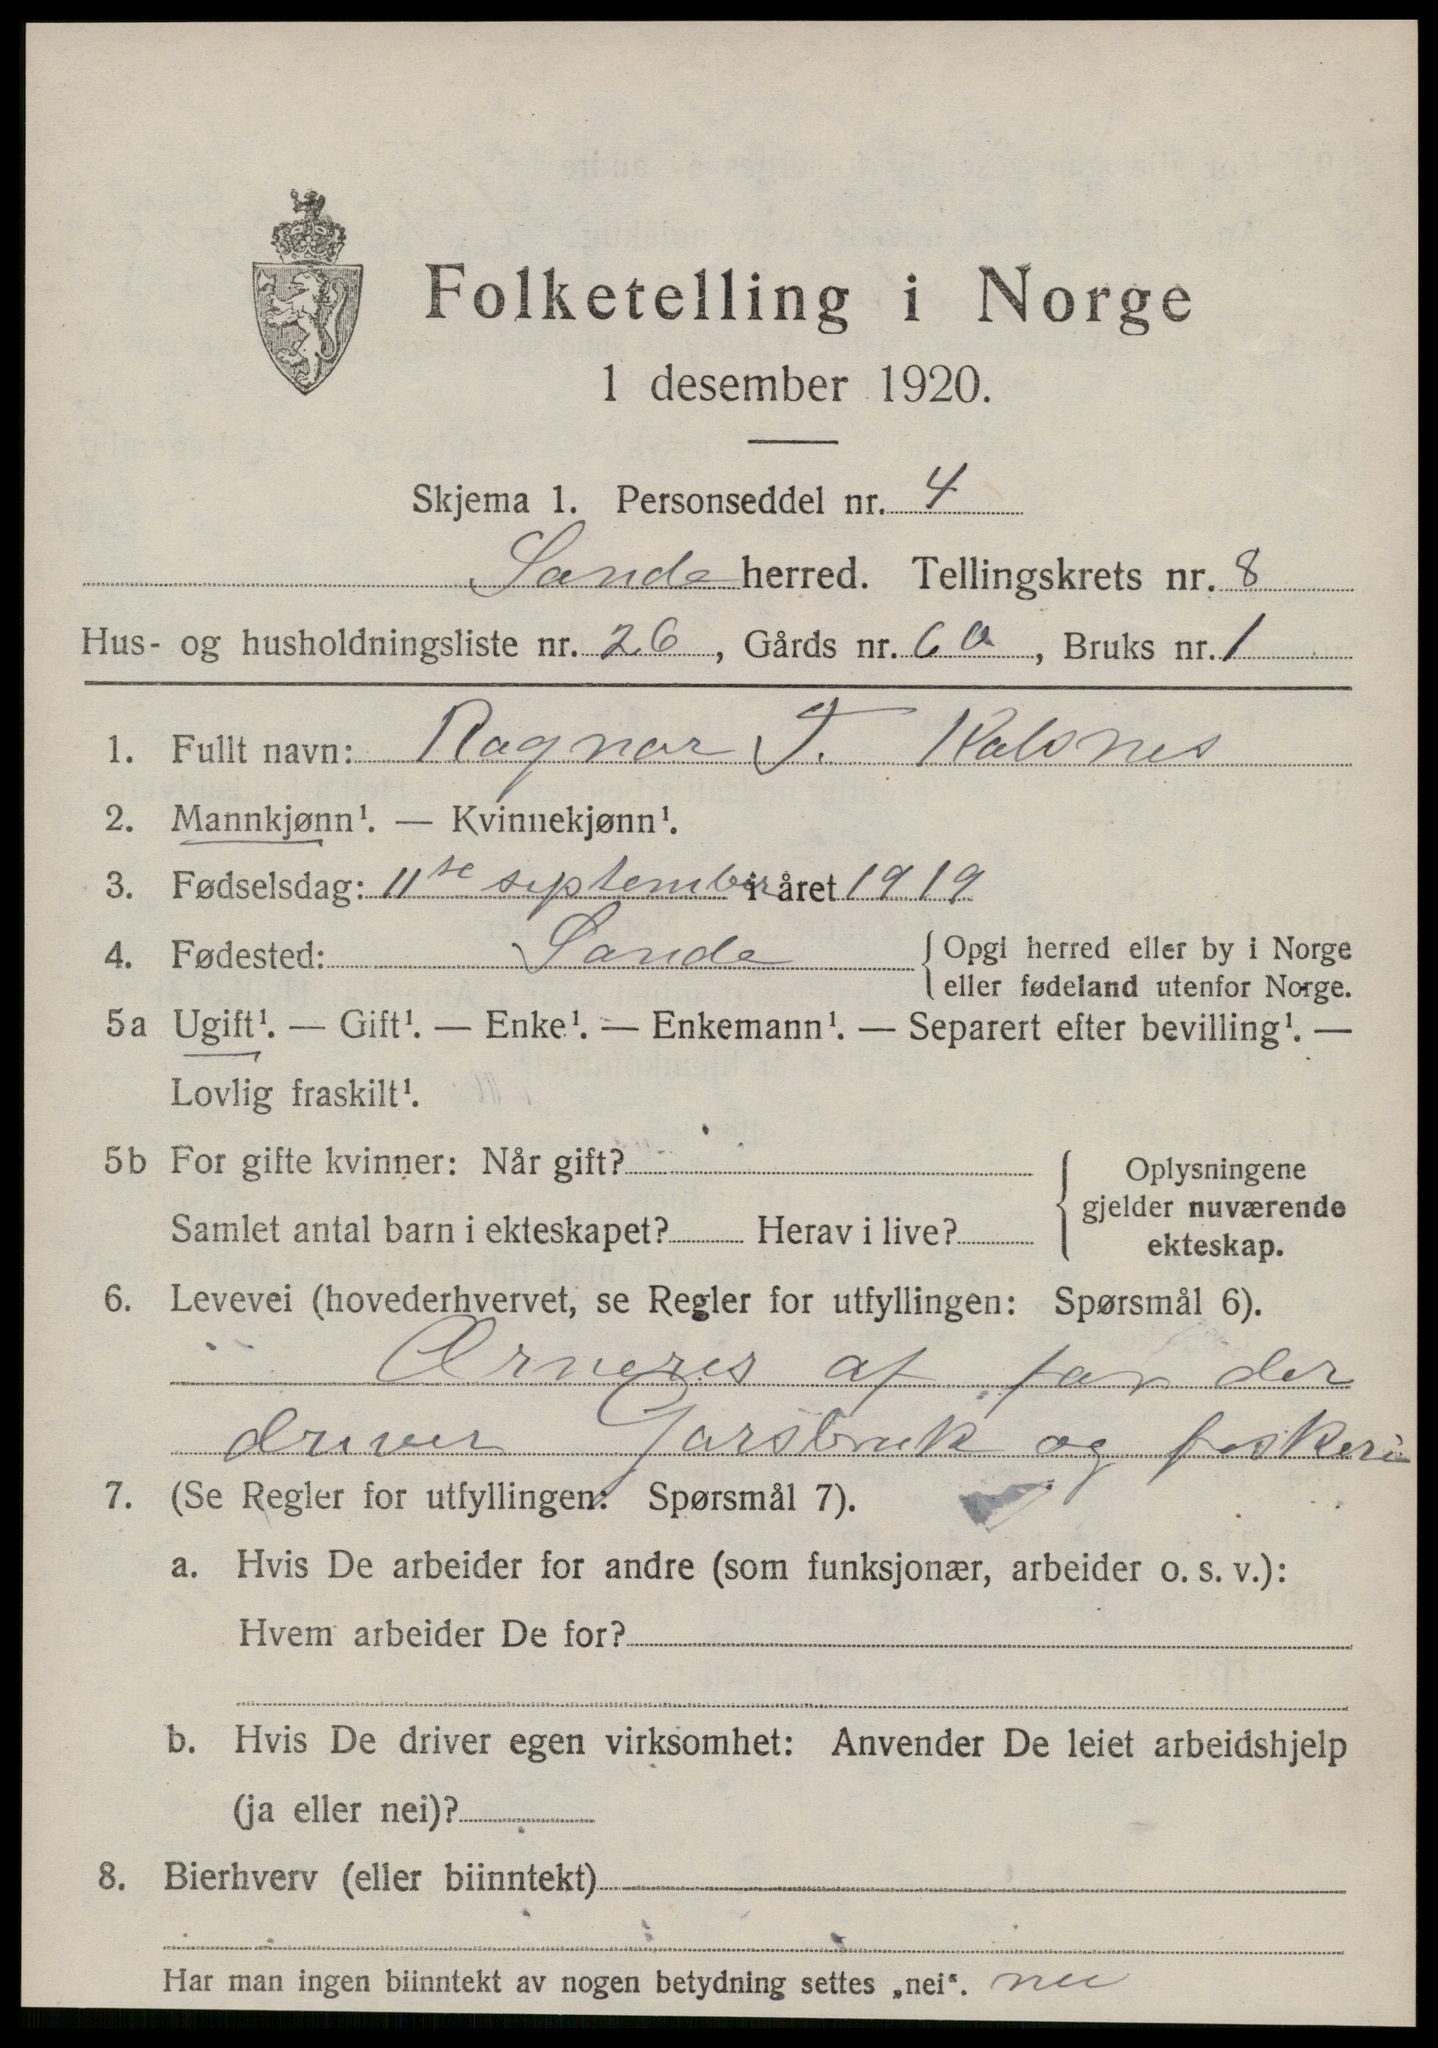 Folketelling i Norge
1 desember 1920.
Skjema 1. Personseddel nr. 4
Sande herred. Tellingskrets nr. 8
Hus- og husholdningsliste nr. 26, Gårds nr. 60, Bruks nr. 1
1. Fullt navn: Ragnar T. Kalsnes
2. Mannkjønn¹. — Kvinnekjønn¹.
3. Fødselsdag: 11te september i året 1919
4. Fødested: Sande { Opgi herred eller by i Norge
eller fødeland utenfor Norge.
5a Ugift¹. — Gift¹. — Enke¹. — Enkemann¹. — Separert efter bevilling¹. —
Lovlig fraskilt¹.
5b For gifte kvinner: Når gift?
Samlet antal barn i ekteskapet? Herav i live?
{ Oplysningene
gjelder nuværende
ekteskap.
6. Levevei (hovederhvervet, se Regler for utfyllingen: Spørsmål 6).
Ærneres af far der
driver Garsbruk og feskeri
7. (Se Regler for utfyllingen: Spørsmål 7).
a. Hvis De arbeider for andre (som funksjonær, arbeider o. s. v.):
Hvem arbeider De for?
b. Hvis De driver egen virksomhet: Anvender De leiet arbeidshjelp
(ja eller nei)?
8. Bierhverv (eller biinntekt)
Har man ingen biinntekt av nogen betydning settes „nei“. nei